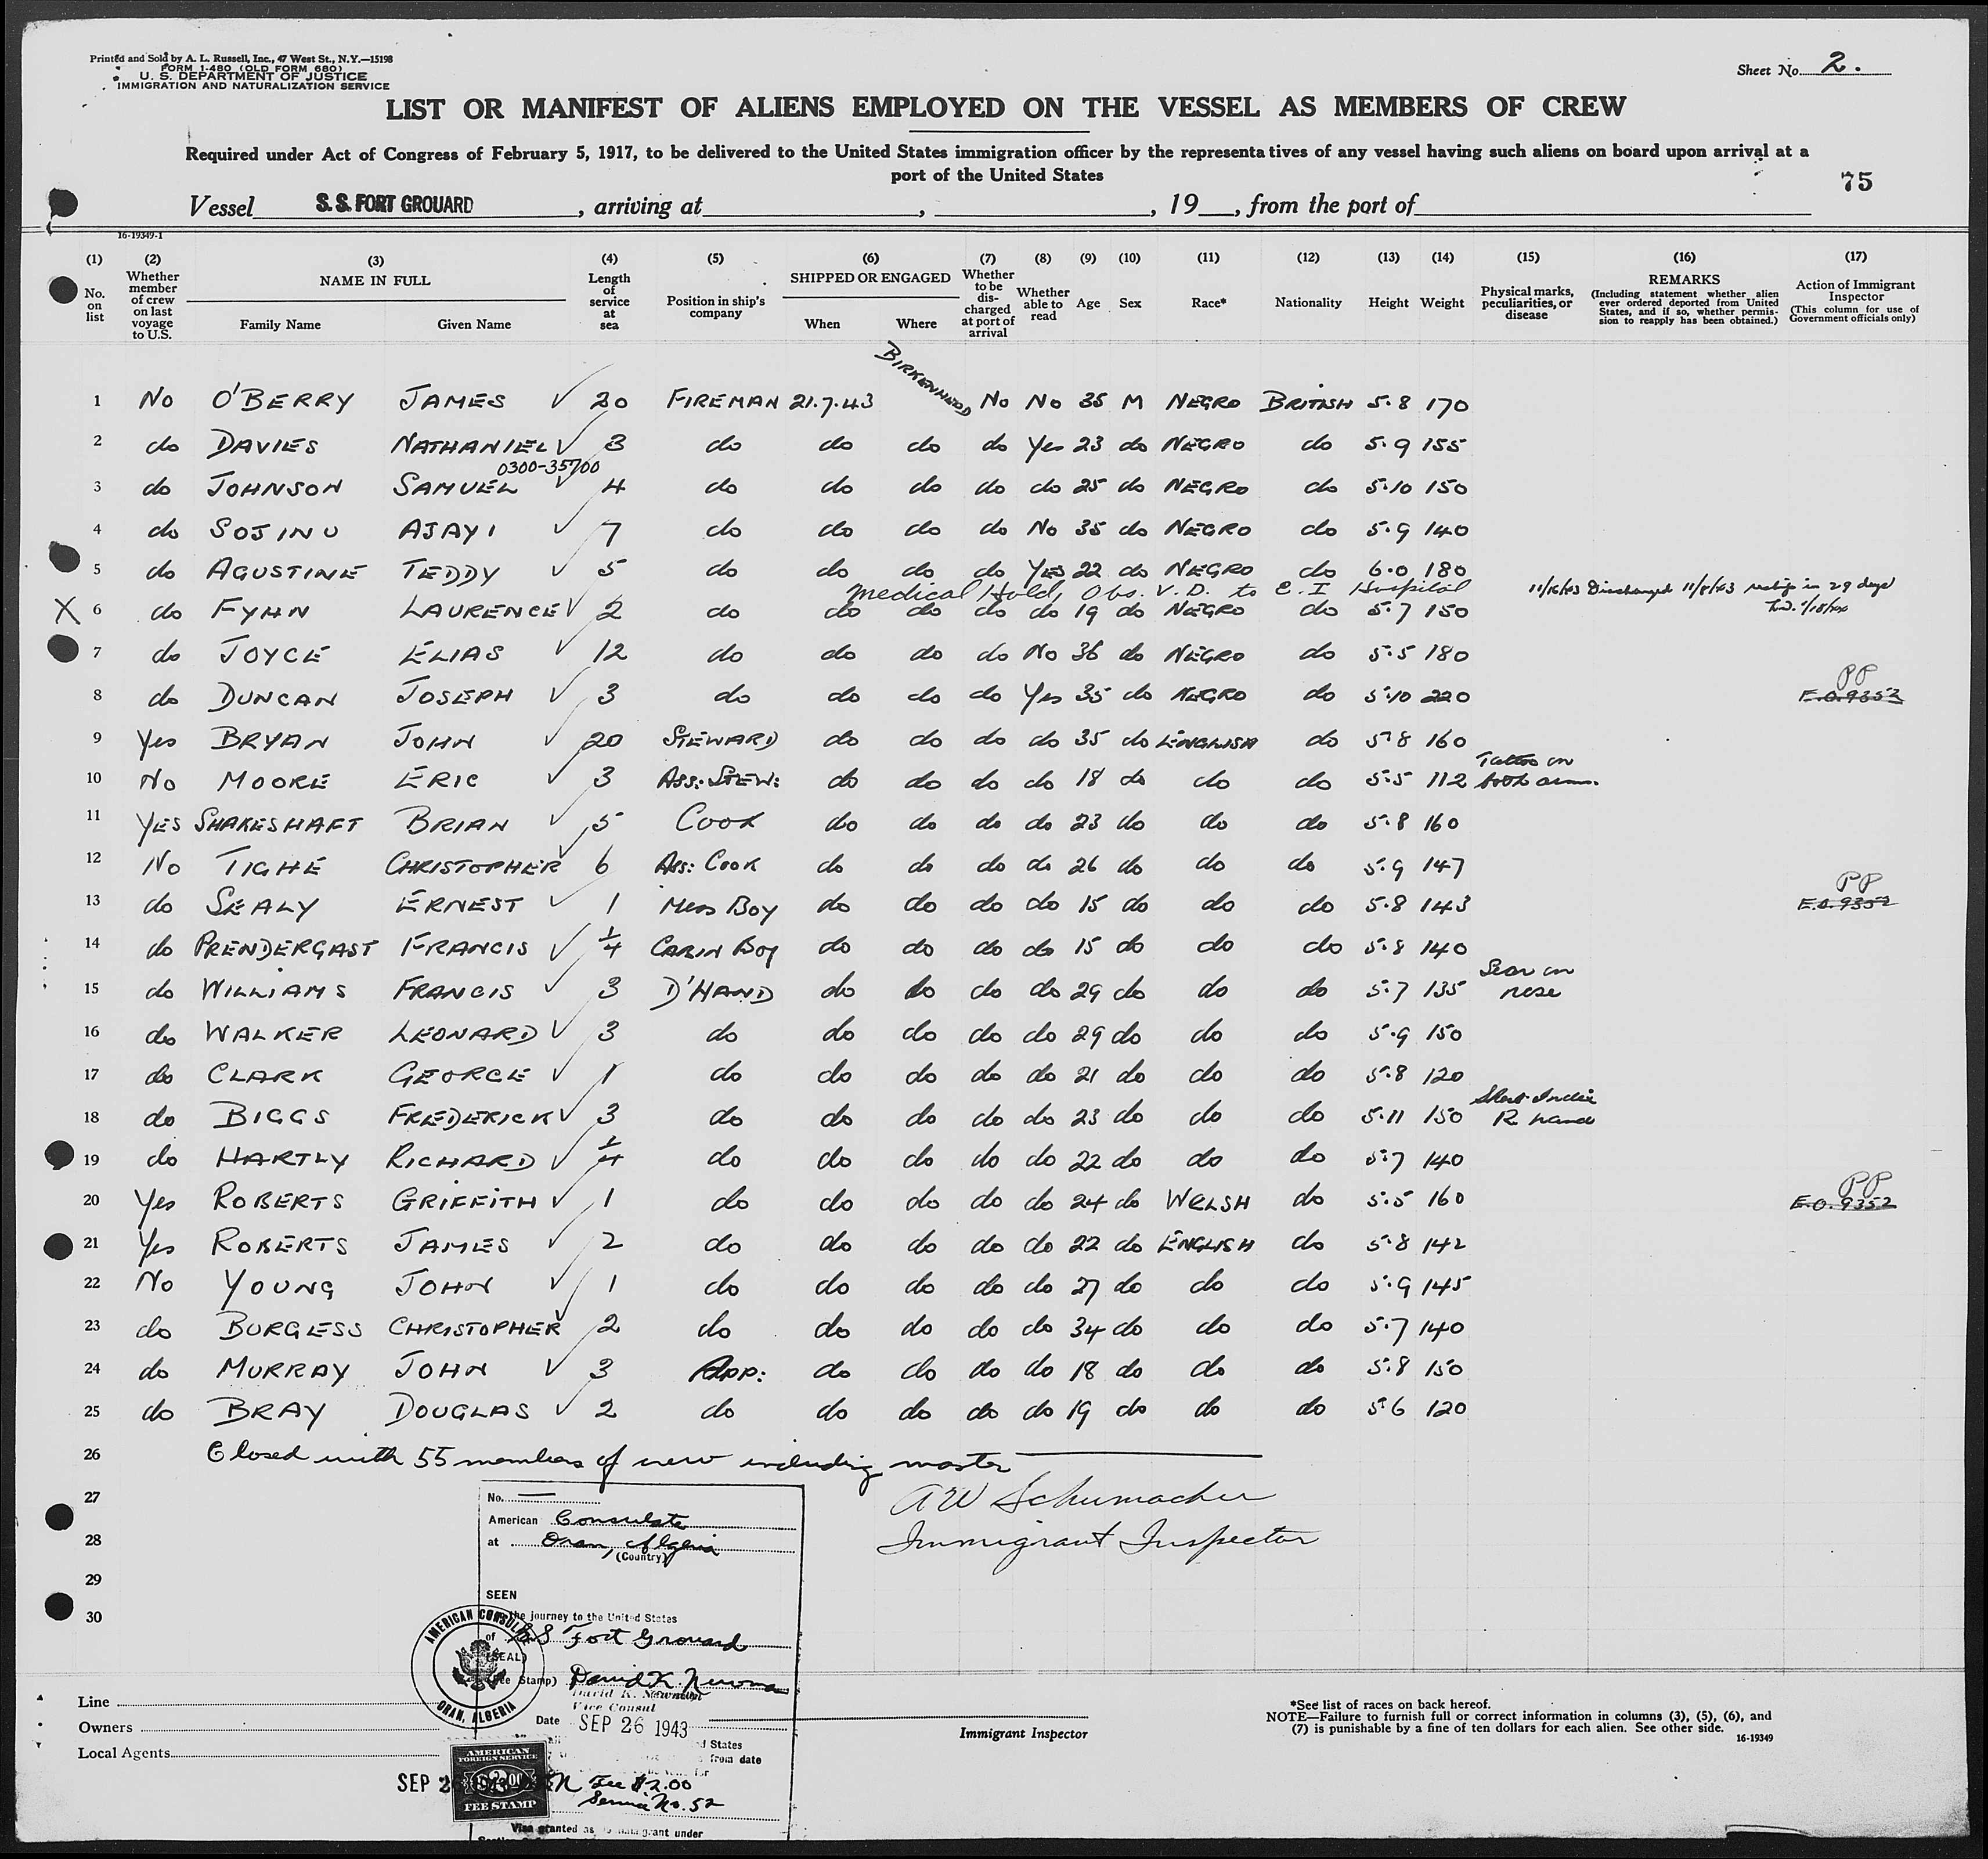 Printed and Sold by A. L. Russell, Inc., 47 West St., N.Y.—15198
FORM 1-480 (OLD FORM 680)
U. S. DEPARTMENT OF JUSTICE
IMMIGRATION AND NATURALIZATION SERVICE
Sheet No. 2.
LIST OR MANIFEST OF ALIENS EMPLOYED ON THE VESSEL AS MEMBERS OF CREW
Required under Act of Congress of February 5, 1917, to be delivered to the United States immigration officer by the representatives of any vessel having such aliens on board upon arrival at a
port of the United States
75
Vessel S.S. FORT GROUARD , arriving at , , 19 , from the port of
16-19349-1
(1) No. on list
(2) Whether member of crew on last voyage to U.S.
(3) NAME IN FULL Family Name Given Name
(4) Length of service at sea
(5) Position in ship's company
(6) SHIPPED OR ENGAGED When Where
(7) Whether to be discharged at port of arrival
(8) Whether able to read
(9) Age
(10) Sex
(11) Race*
(12) Nationality
(13) Height
(14) Weight
(15) Physical marks, peculiarities, or disease
(16) REMARKS (Including statement whether alien ever ordered deported from United States, and if so, whether permission to reapply has been obtained.)
(17) Action of Immigrant Inspector (This column for use of Government officials only)
1 No O'BERRY JAMES ✓ 20 FIREMAN 21.7.43 BIRKENHEAD No No 35 M NEGRO BRITISH 5.8 170
2 do DAVIES NATHANIEL ✓ 3 do do do do Yes 23 do NEGRO do 5.9 155
0300-35700
3 do JOHNSON SAMUEL ✓ 4 do do do do do 25 do NEGRO do 5.10 150
4 do SOJINU AJAYI ✓ 7 do do do do No 35 do NEGRO do 5.9 140
5 do AGUSTINE TEDDY ✓ 5 do do do do YES 22 do NEGRO do 6.0 180
Medical Hold, Obs. V.D. to E. I Hospital 11/16/43 Discharged 11/8/43 in 29 days
X 6 do FYHN LAURENCE ✓ 2 do do do do do 19 do NEGRO do 5.7 150
7 do JOYCE ELIAS ✓ 12 do do do do No 36 do NEGRO do 5.5 180
8 do DUNCAN JOSEPH ✓ 3 do do do do Yes 35 do NEGRO do 5.10 220 PP E.O.9352
9 Yes BRYAN JOHN ✓ 20 STEWARD do do do do 35 do ENGLISH do 5.8 160
10 No MOORE ERIC ✓ 3 ASS: STEW: do do do do 18 do do do 5.5 112 Tattoo on both arms.
11 YES SHAKESHAFT BRIAN ✓ 5 COOK do do do do 23 do do do 5.8 160
12 No TIGHE CHRISTOPHER ✓ 6 ASS: COOK do do do do 26 do do do 5.9 147
13 do SEALY ERNEST ✓ 1 MESS BOY do do do do 15 do do do 5.8 143 PP E.O.9352
14 do PRENDERGAST FRANCIS ✓ 1/4 CABIN BOY do do do do 15 do do do 5.8 140
15 do WILLIAMS FRANCIS ✓ 3 D'HAND do do do do 29 do do do 5.7 135 Scar on nose
16 do WALKER LEONARD ✓ 3 do do do do do 29 do do do 5.9 150
17 do CLARK GEORGE ✓ 1 do do do do do 21 do do do 5.8 120
18 do BIGGS FREDERICK ✓ 3 do do do do do 23 do do do 5.11 150 R hand
19 do HARTLY RICHARD ✓ 1/4 do do do do do 22 do do do 5.7 140
20 Yes ROBERTS GRIFFITH ✓ 1 do do do do do 24 do WELSH do 5.5 160 PP E.O.9352
21 Yes ROBERTS JAMES ✓ 2 do do do do do 22 do ENGLISH do 5.8 142
22 No YOUNG JOHN ✓ 1 do do do do do 27 do do do 5.9 145
23 do BURGESS CHRISTOPHER ✓ 2 do do do do do 34 do do do 5.7 140
24 do MURRAY JOHN ✓ 3 APP: do do do do 18 do do do 5.8 150
25 do BRAY DOUGLAS ✓ 2 do do do do do 19 do do do 5.6 120
26 Closed with 55 members of crew including master
27
28
29
30
AW Schumacher
Immigrant Inspector
No. —
American Consulate
at Oran, Algeria
(Country)
SEEN
the journey to the United States
of SS Fort Grouard
(SEAL)
(Fee Stamp) David K. Newman
David K. Newman
Vice Consul
Date SEP 26 1943
States
from date
AMERICAN CONSULATE
ORAN, ALGERIA
AMERICAN FOREIGN SERVICE
$2.00
FEE STAMP
SEP 26 1943
Fee $2.00
Service No. 52
Visa granted as grant under
Line
Owners
Local Agents
Immigrant Inspector
*See list of races on back hereof.
NOTE—Failure to furnish full or correct information in columns (3), (5), (6), and
(7) is punishable by a fine of ten dollars for each alien. See other side.
16-19349